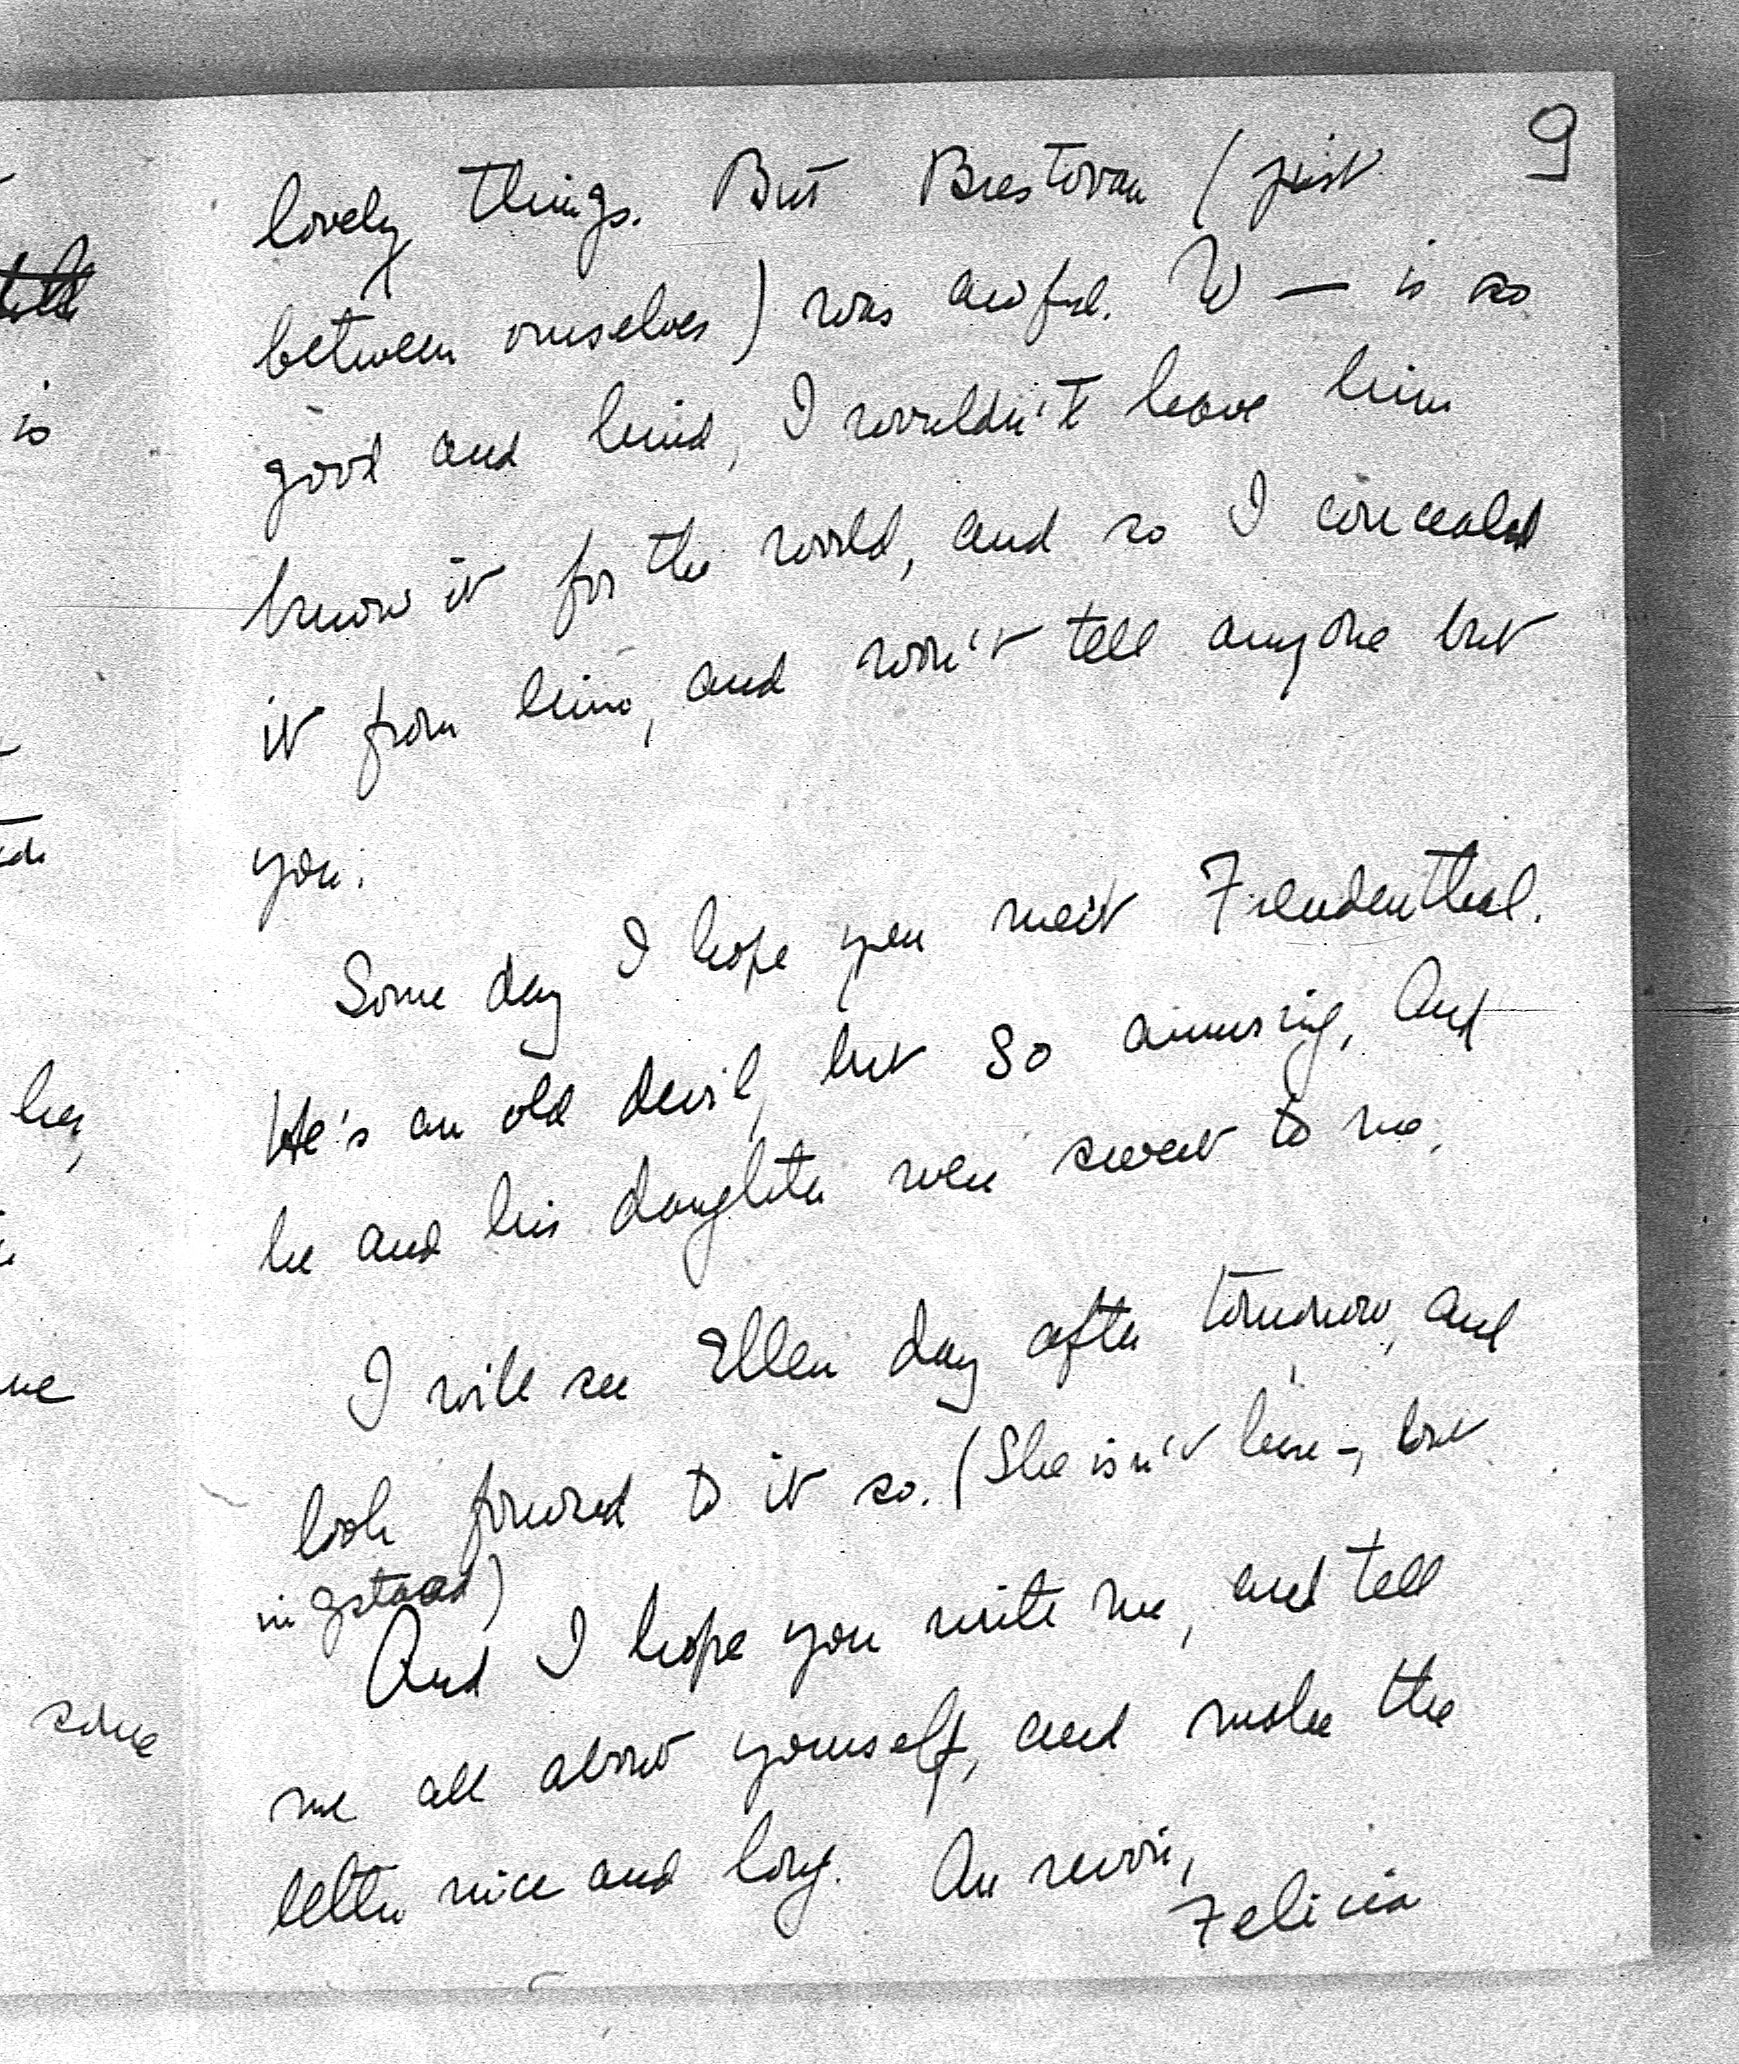 9
lovely things. But Brestovan (just
between ourselves) was awful. W — is so
good and kind, I wouldn't leave him
know it for the world, and so I concealed
it from him, and won't tell anyone but
you.
Some day I hope you meet Freudenthal.
He's an old devil, but so amusing, and
he and his daughter were sweet to me.
I will see Ellen day after tomorrow, and
look forward to it so. (She isn't here –, but
in Gstaad)
And I hope you write me, and tell
me all about yourself, and make the
letter nice and long. Au revoir,
Felicia
is
her,
some